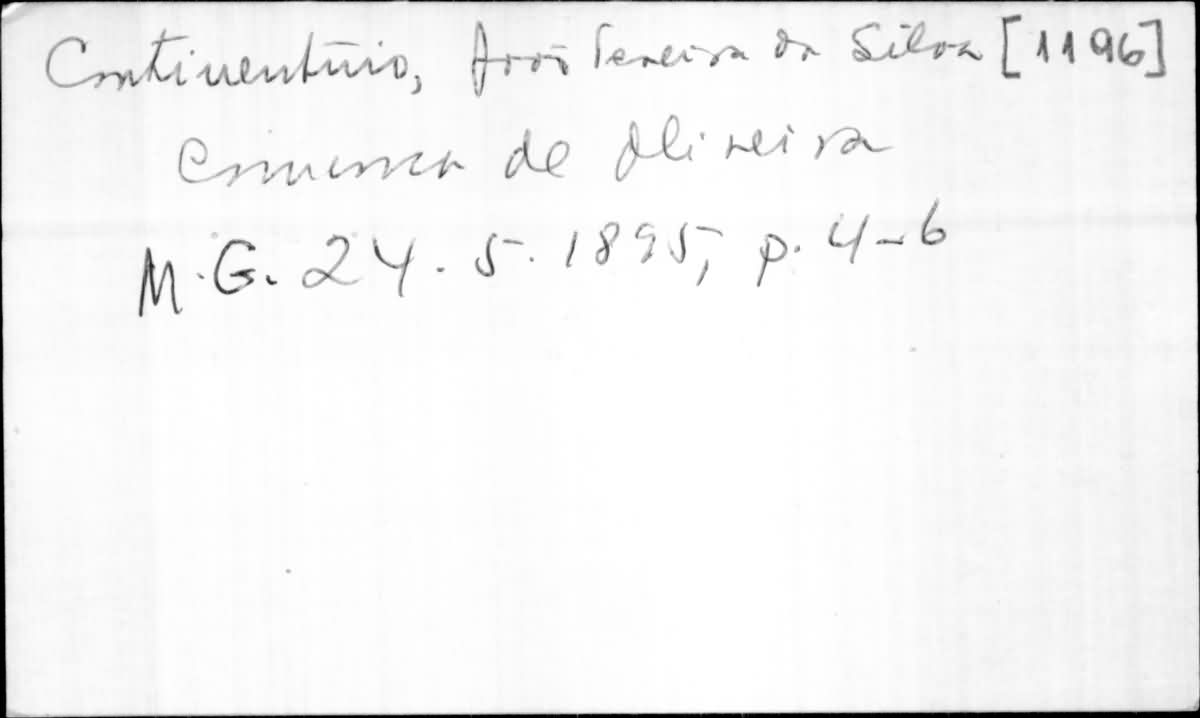 Continentino, João Pereira da Silva [1196]
Comarca de Oliveira
M.G. 24.5.1895, p. 4-6